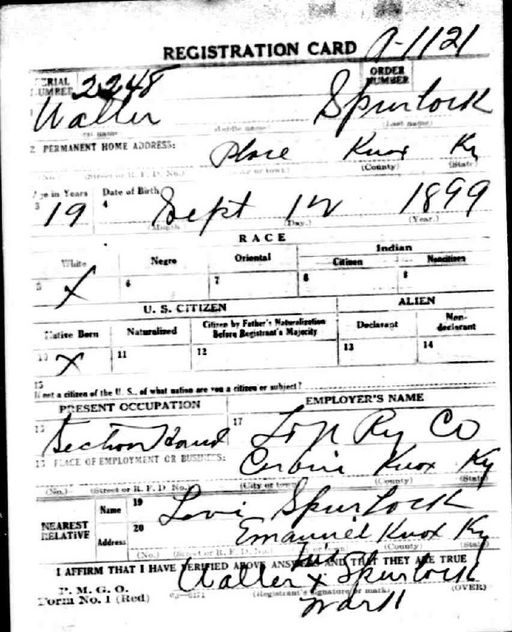 REGISTRATION CARD A-1121
SERIAL NUMBER 2248 ORDER NUMBER
Walter Spurlock
(Middle name) (Last name)
2 PERMANENT HOME ADDRESS: Place Knox Ky
(No.) (Street or R. F. D. No.) (City or town) (County) (State)
Age in Years Date of Birth
3 19 4 Sept 12 1899
(Month) (Day.) (Year.)
RACE
White Negro Oriental Indian
Citizen Noncitizen
5 X 6 7 8 9
U. S. CITIZEN ALIEN
Native Born Naturalized Citizen by Father's Naturalization Before Registrant's Majority Declarant Non-declarant
10 X 11 12 13 14
15
If not a citizen of the U. S., of what nation are you a citizen or subject?
PRESENT OCCUPATION EMPLOYER'S NAME
16 Section Hand 17 L & N Ry Co
18 PLACE OF EMPLOYMENT OR BUSINESS: Corbin Knox Ky
(No.) (Street or R. F. D. No.) (City or town) (County) (State)
NEAREST RELATIVE Name 19 Levi Spurlock
Address 20 Emanuel Knox Ky
(No.) (Street or R. F. D. No.) (County) (State)
I AFFIRM THAT I HAVE VERIFIED ABOVE ANSWERS AND THAT THEY ARE TRUE
his
P. M. G. O. Walter X Spurlock
Form No. 1 (Red) (Registrant's signature or mark) (OVER)
mark